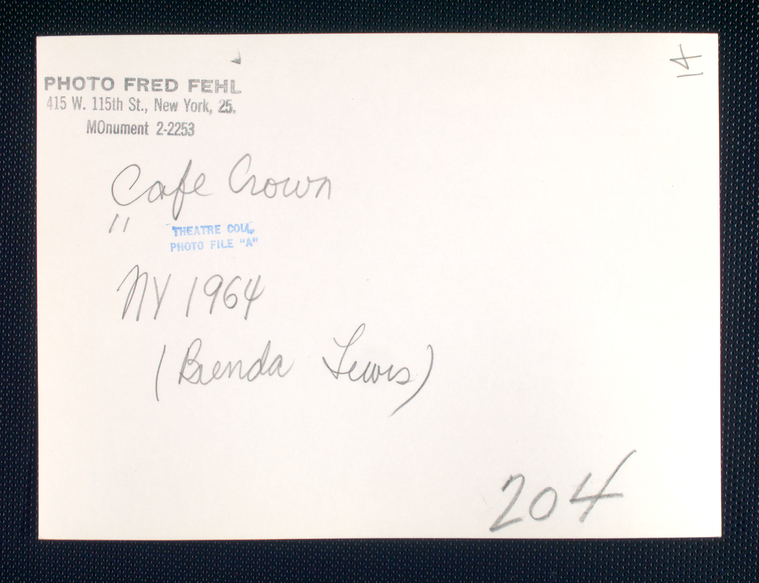 PHOTO FRED FEHL
415 W. 115th St., New York, 25.
MOnument 2-2253
14
Cafe Crown
"
THEATRE COLL.
PHOTO FILE "A"
NY 1964
(Brenda Lewis)
204